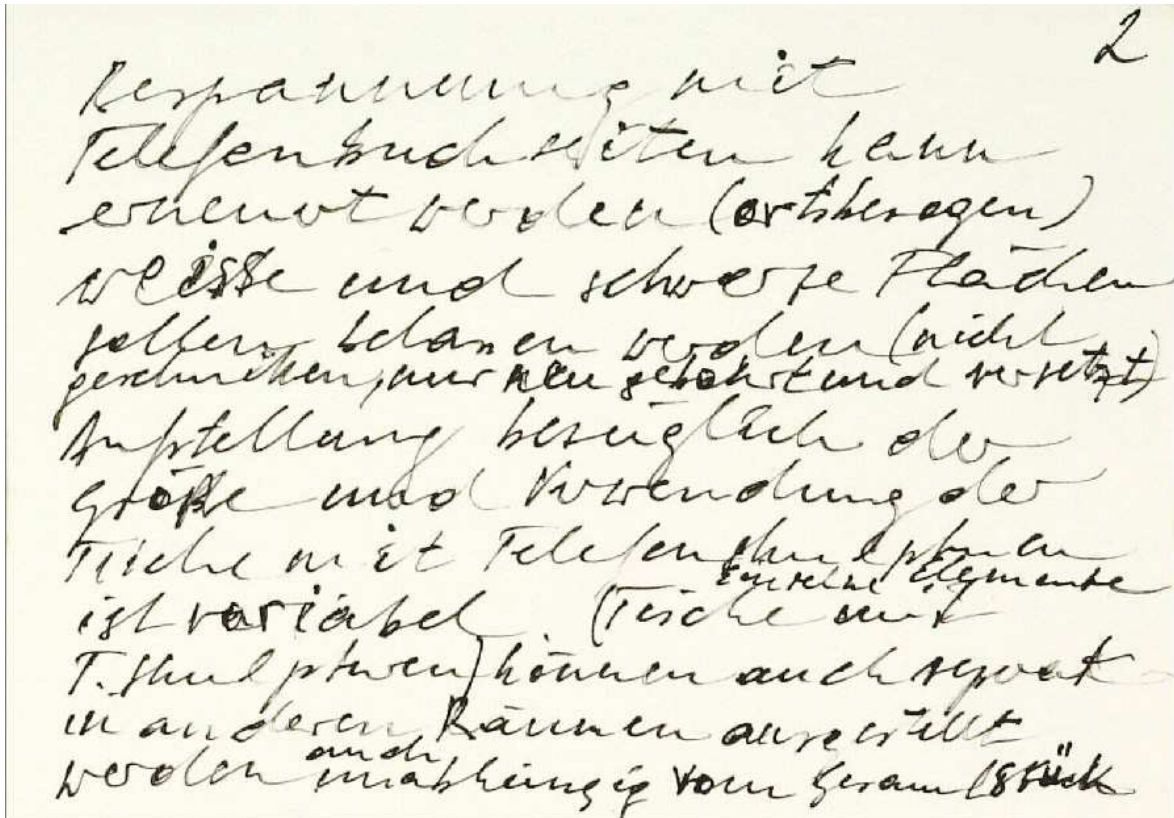 2
Bespannung mit
Telefonbuchseiten kann
erneut werden (ortsbezogen)
weisse und schwarze Flächen
sollen belassen werden (nicht
geschnitten, nur neu gebohrt und versetzt)
Aufstellung bezüglich der
größe und Verwendung der
Tische mit Telefonskulpturen
einzelne Elemente
ist variabel (Tische mit
T.skulpturen) können auch separat
in anderen Räumen ausgestellt
auch
werden unabhängig vom Gesamtstück